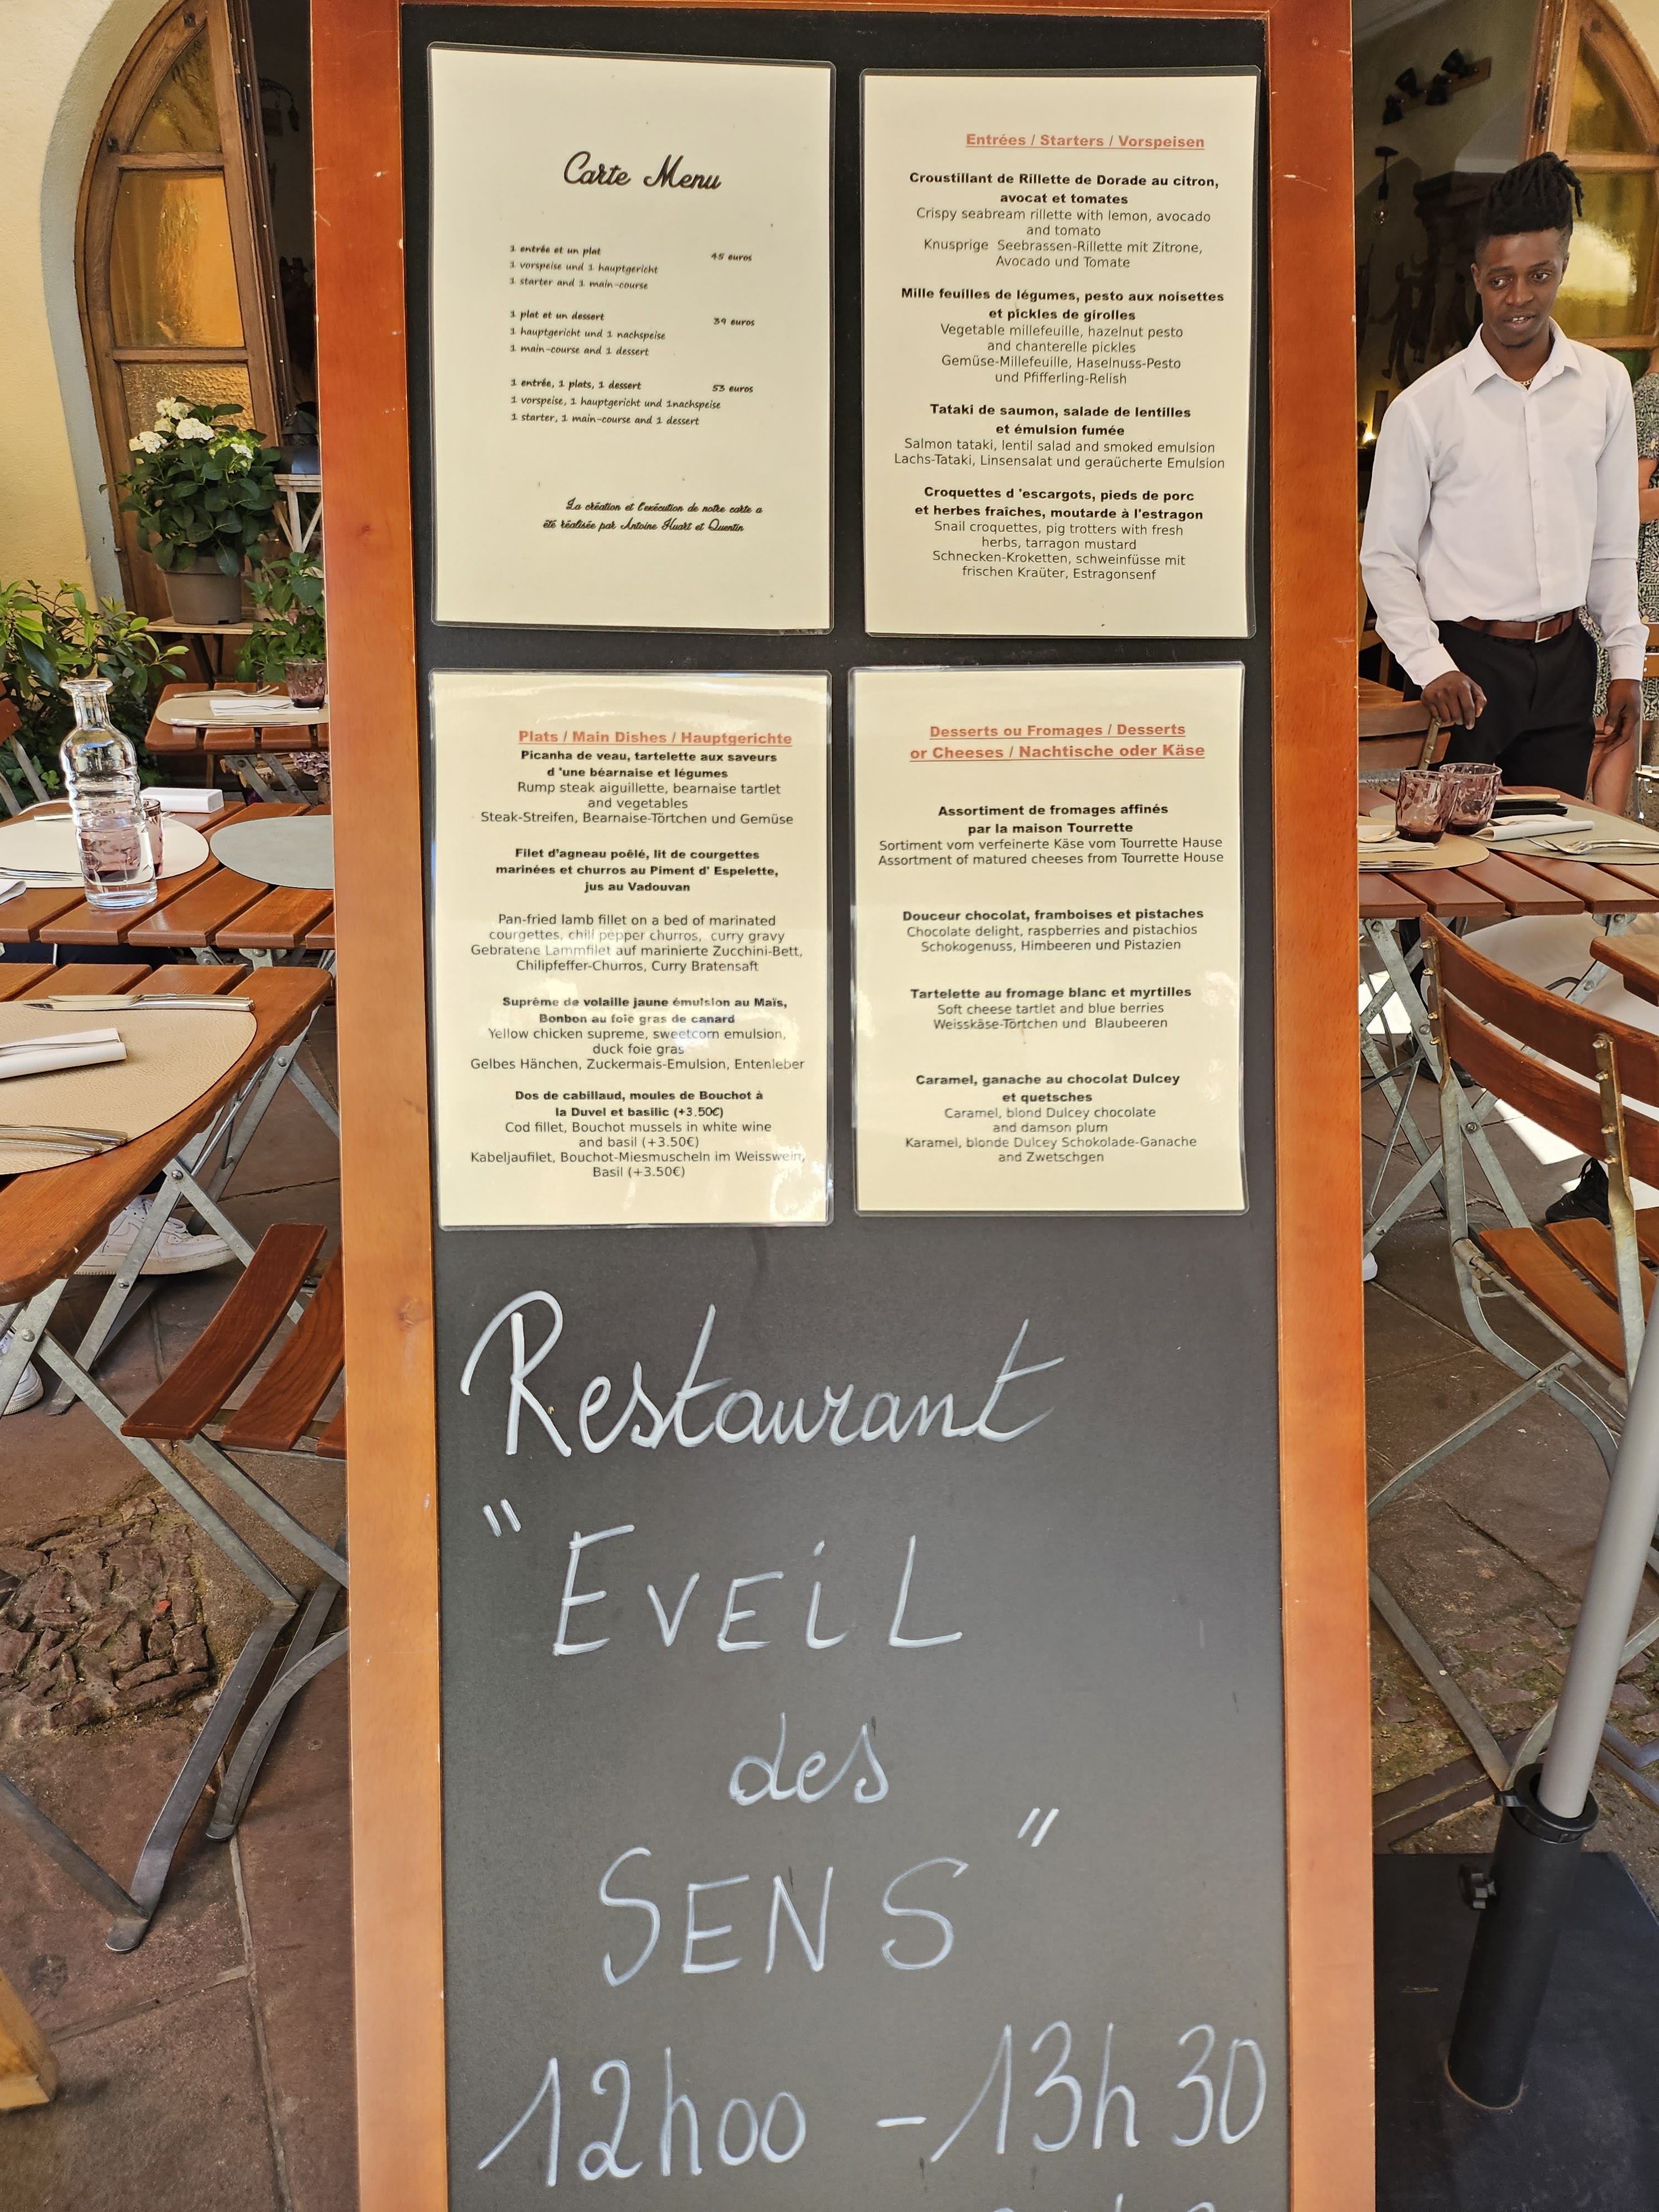 Carte Menu
1 entrée et un plat 45 euros
1 vorspeise und 1 hauptgericht
1 starter and 1 main-course
1 plat et un dessert 39 euros
1 hauptgericht und 1 nachspeise
1 main-course and 1 dessert
1 entrée, 1 plats, 1 dessert 53 euros
1 vorspeise, 1 hauptgericht und 1nachspeise
1 starter, 1 main-course and 1 dessert
La création et l'exécution de notre carte a
été réalisée par Antoine Huart et Quentin
Entrées / Starters / Vorspeisen
Croustillant de Rillette de Dorade au citron,
avocat et tomates
Crispy seabream rillette with lemon, avocado
and tomato
Knusprige Seebrassen-Rillette mit Zitrone,
Avocado und Tomate
Mille feuilles de légumes, pesto aux noisettes
et pickles de girolles
Vegetable millefeuille, hazelnut pesto
and chanterelle pickles
Gemüse-Millefeuille, Haselnuss-Pesto
und Pfifferling-Relish
Tataki de saumon, salade de lentilles
et émulsion fumée
Salmon tataki, lentil salad and smoked emulsion
Lachs-Tataki, Linsensalat und geraücherte Emulsion
Croquettes d 'escargots, pieds de porc
et herbes fraiches, moutarde à l'estragon
Snail croquettes, pig trotters with fresh
herbs, tarragon mustard
Schnecken-Kroketten, schweinfüsse mit
frischen Kraüter, Estragonsenf
Plats / Main Dishes / Hauptgerichte
Picanha de veau, tartelette aux saveurs
d 'une béarnaise et légumes
Rump steak aiguillette, bearnaise tartlet
and vegetables
Steak-Streifen, Bearnaise-Törtchen und Gemüse
Filet d'agneau poêlé, lit de courgettes
marinées et churros au Piment d' Espelette,
jus au Vadouvan
Pan-fried lamb fillet on a bed of marinated
courgettes, chili pepper churros, curry gravy
Gebratene Lammfilet auf marinierte Zucchini-Bett,
Chilipfeffer-Churros, Curry Bratensaft
Suprême de volaille jaune émulsion au Maïs,
Bonbon au foie gras de canard
Yellow chicken supreme, sweetcorn emulsion,
duck foie gras
Gelbes Hänchen, Zuckermais-Emulsion, Entenleber
Dos de cabillaud, moules de Bouchot à
la Duvel et basilic (+3.50€)
Cod fillet, Bouchot mussels in white wine
and basil (+3.50€)
Kabeljaufilet, Bouchot-Miesmuscheln im Weisswein,
Basil (+3.50€)
Desserts ou Fromages / Desserts
or Cheeses / Nachtische oder Käse
Assortiment de fromages affinés
par la maison Tourrette
Sortiment vom verfeinerte Käse vom Tourrette Hause
Assortment of matured cheeses from Tourrette House
Douceur chocolat, framboises et pistaches
Chocolate delight, raspberries and pistachios
Schokogenuss, Himbeeren und Pistazien
Tartelette au fromage blanc et myrtilles
Soft cheese tartlet and blue berries
Weisskäse-Törtchen und Blaubeeren
Caramel, ganache au chocolat Dulcey
et quetsches
Caramel, blond Dulcey chocolate
and damson plum
Karamel, blonde Dulcey Schokolade-Ganache
and Zwetschgen
Restaurant
"EVEiL
des
SENS"
12h00 - 13h30